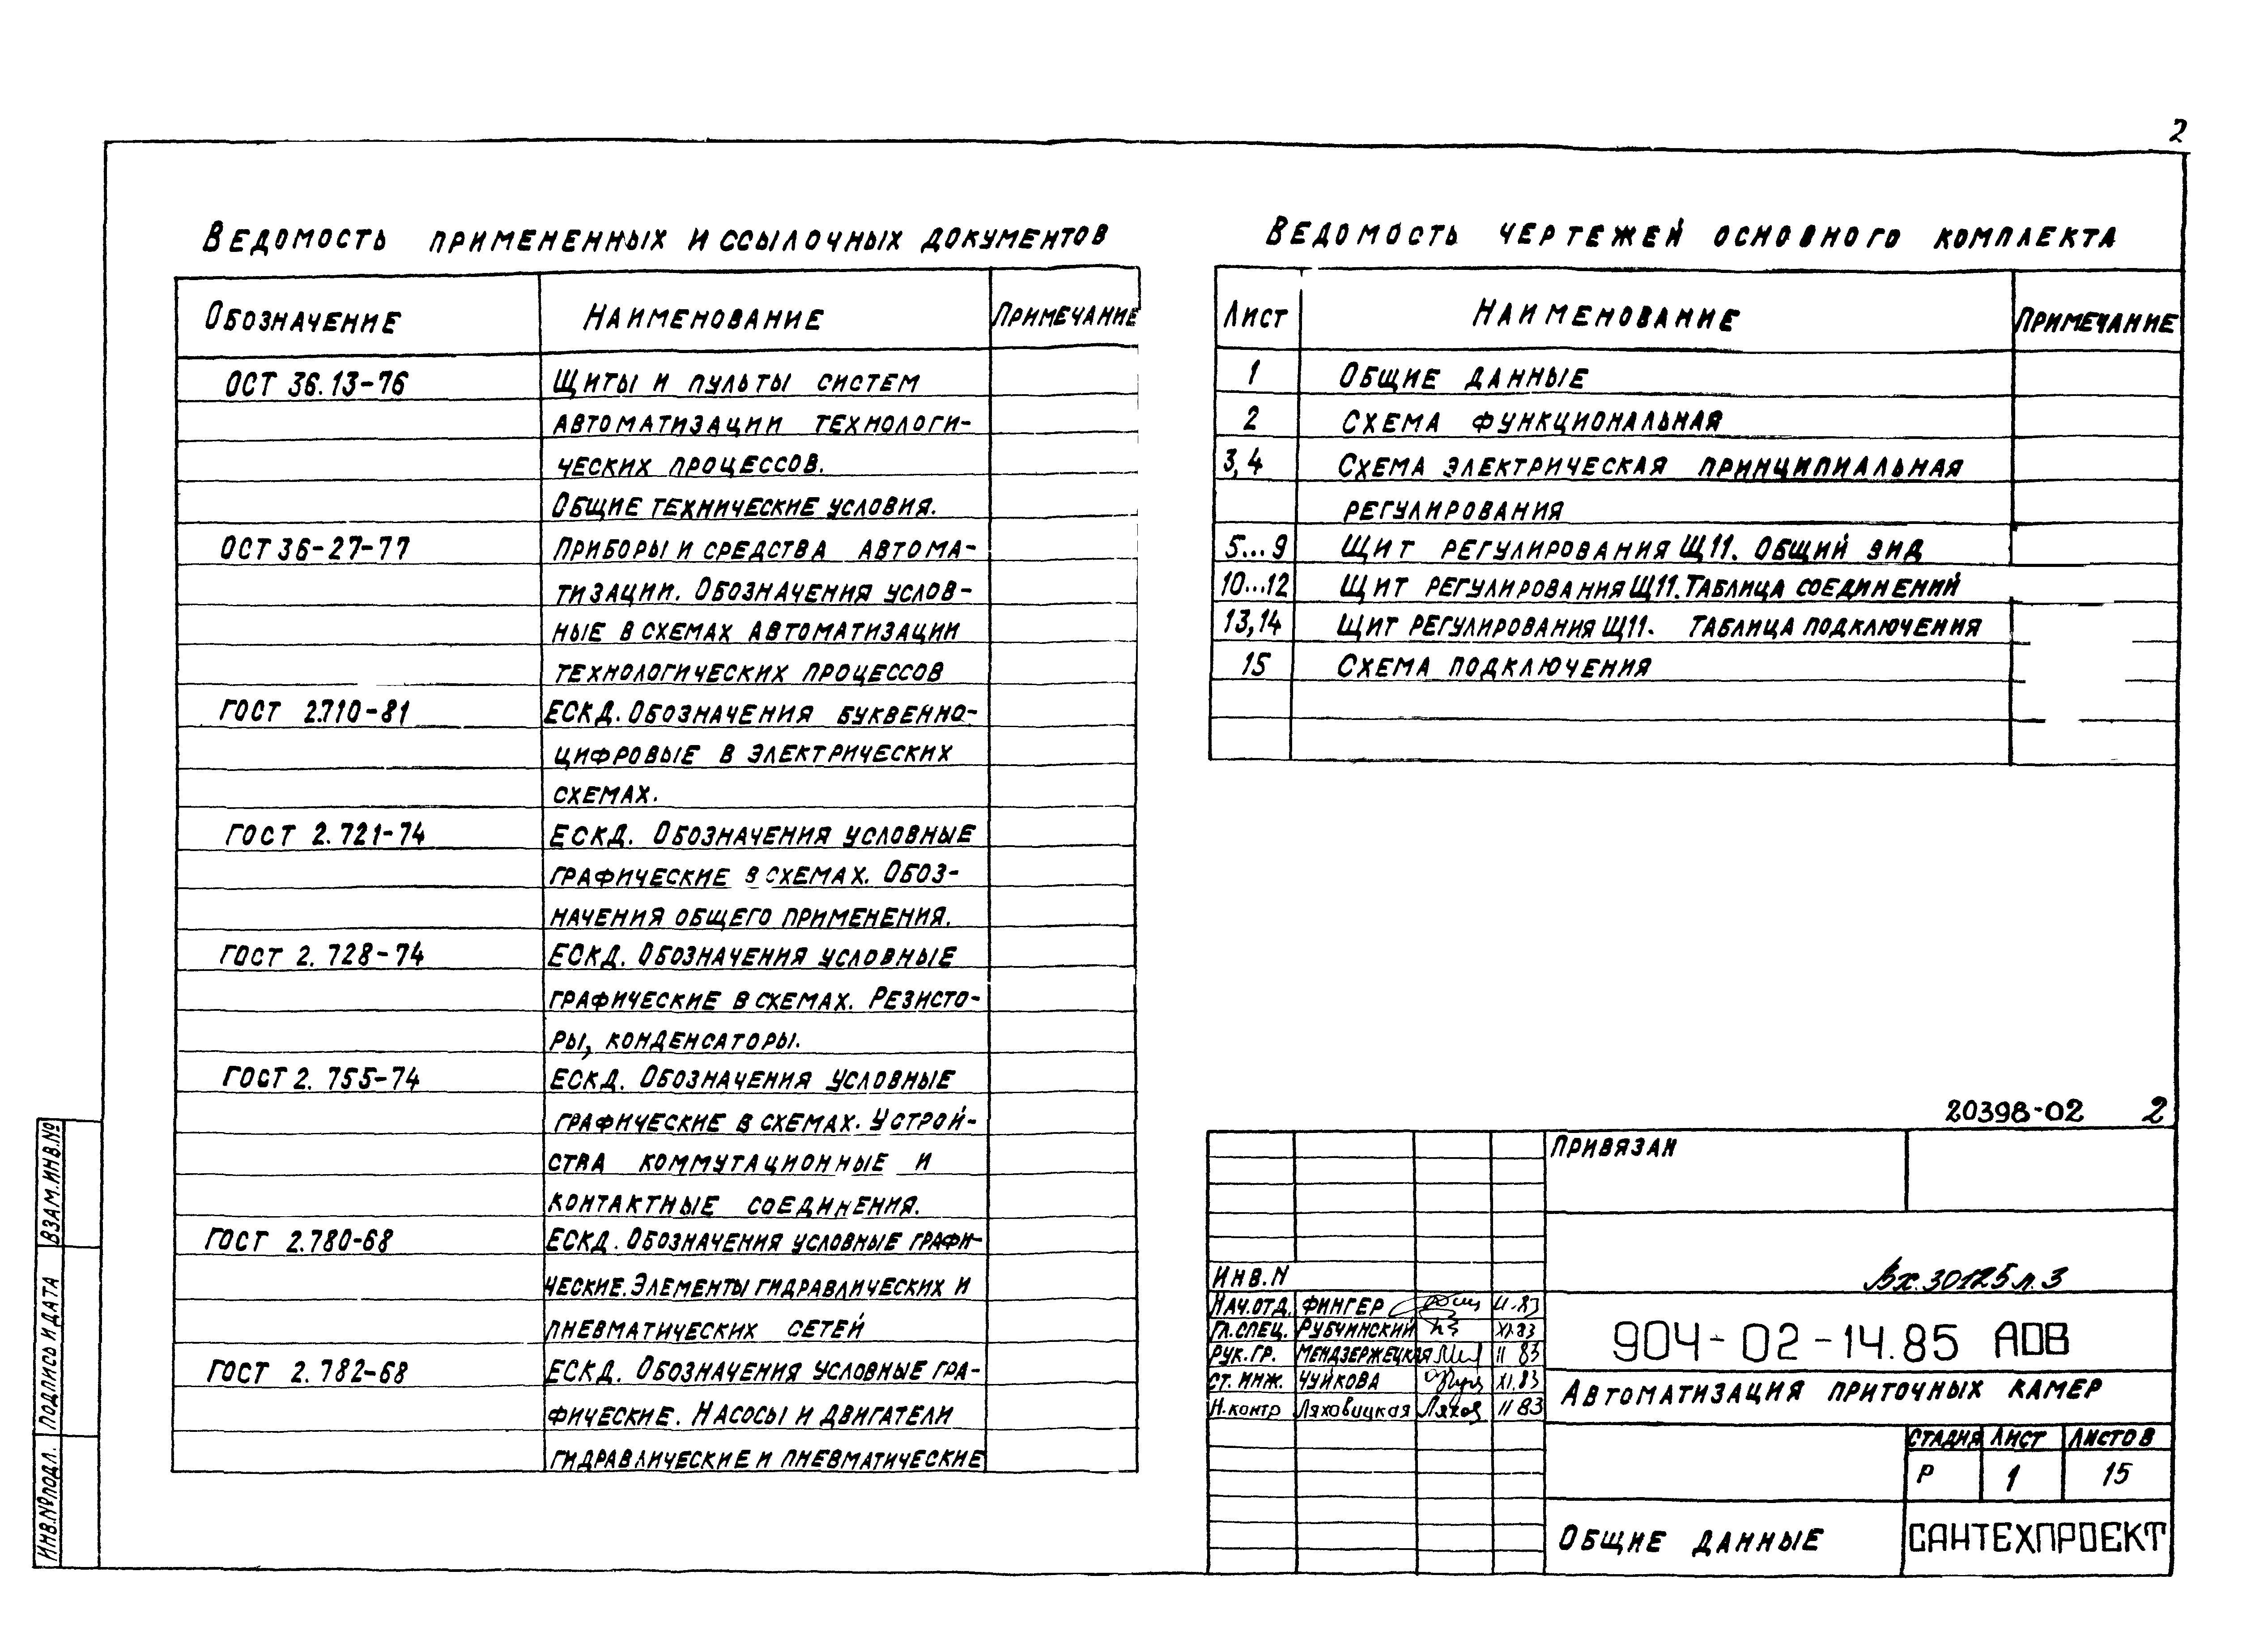 2
Ведомость примененных и ссылочных документов
Обозначение Наименование Примечание
ОСТ 36.13-76 Щиты и пульты систем
автоматизации технологи-
ческих процессов.
Общие технические условия.
ОСТ 36-27-77 Приборы и средства автома-
тизации. Обозначения услов-
ные в схемах автоматизации
технологических процессов
ГОСТ 2.710-81 ЕСКД. Обозначения буквенно-
цифровые в электрических
схемах.
ГОСТ 2.721-74 ЕСКД. Обозначения условные
графические в схемах. Обоз-
начения общего применения.
ГОСТ 2.728-74 ЕСКД. Обозначения условные
графические в схемах. Резисто-
ры, конденсаторы.
ГОСТ 2.755-74 ЕСКД. Обозначения условные
графические в схемах. Устрой-
ства коммутационные и
контактные соединения.
ГОСТ 2.780-68 ЕСКД. Обозначения условные графи-
ческие. Элементы гидравлических и
пневматических сетей
ГОСТ 2.782-68 ЕСКД. Обозначения условные гра-
фические. Насосы и двигатели
гидравлические и пневматические
Ведомость чертежей основного комплекта
Лист Наименование Примечание
1 Общие данные
2 Схема функциональная
3,4 Схема электрическая принципиальная
регулирования
5...9 Щит регулирования Щ11. Общий вид
10...12 Щит регулирования Щ11. Таблица соединений
13,14 Щит регулирования Щ11. Таблица подключения
15 Схема подключения
20398-02 2
Привязан
Инв.N
Вх.30125 л.3
Нач.отд. Фингер 11.83
Гл.спец. Рубчинский XI.83
Рук.гр. Мендзержецкая 11 83
Ст. инж. Чуйкова XI.83
Н.контр Ляховицкая Ляхов 11 83
904-02-14.85 АОВ
Автоматизация приточных камер
Стадия Лист Листов
Р 1 15
Общие данные
САНТЕХПРОЕКТ
Взам.инв.№
Подпись и дата
Инв.№подл.